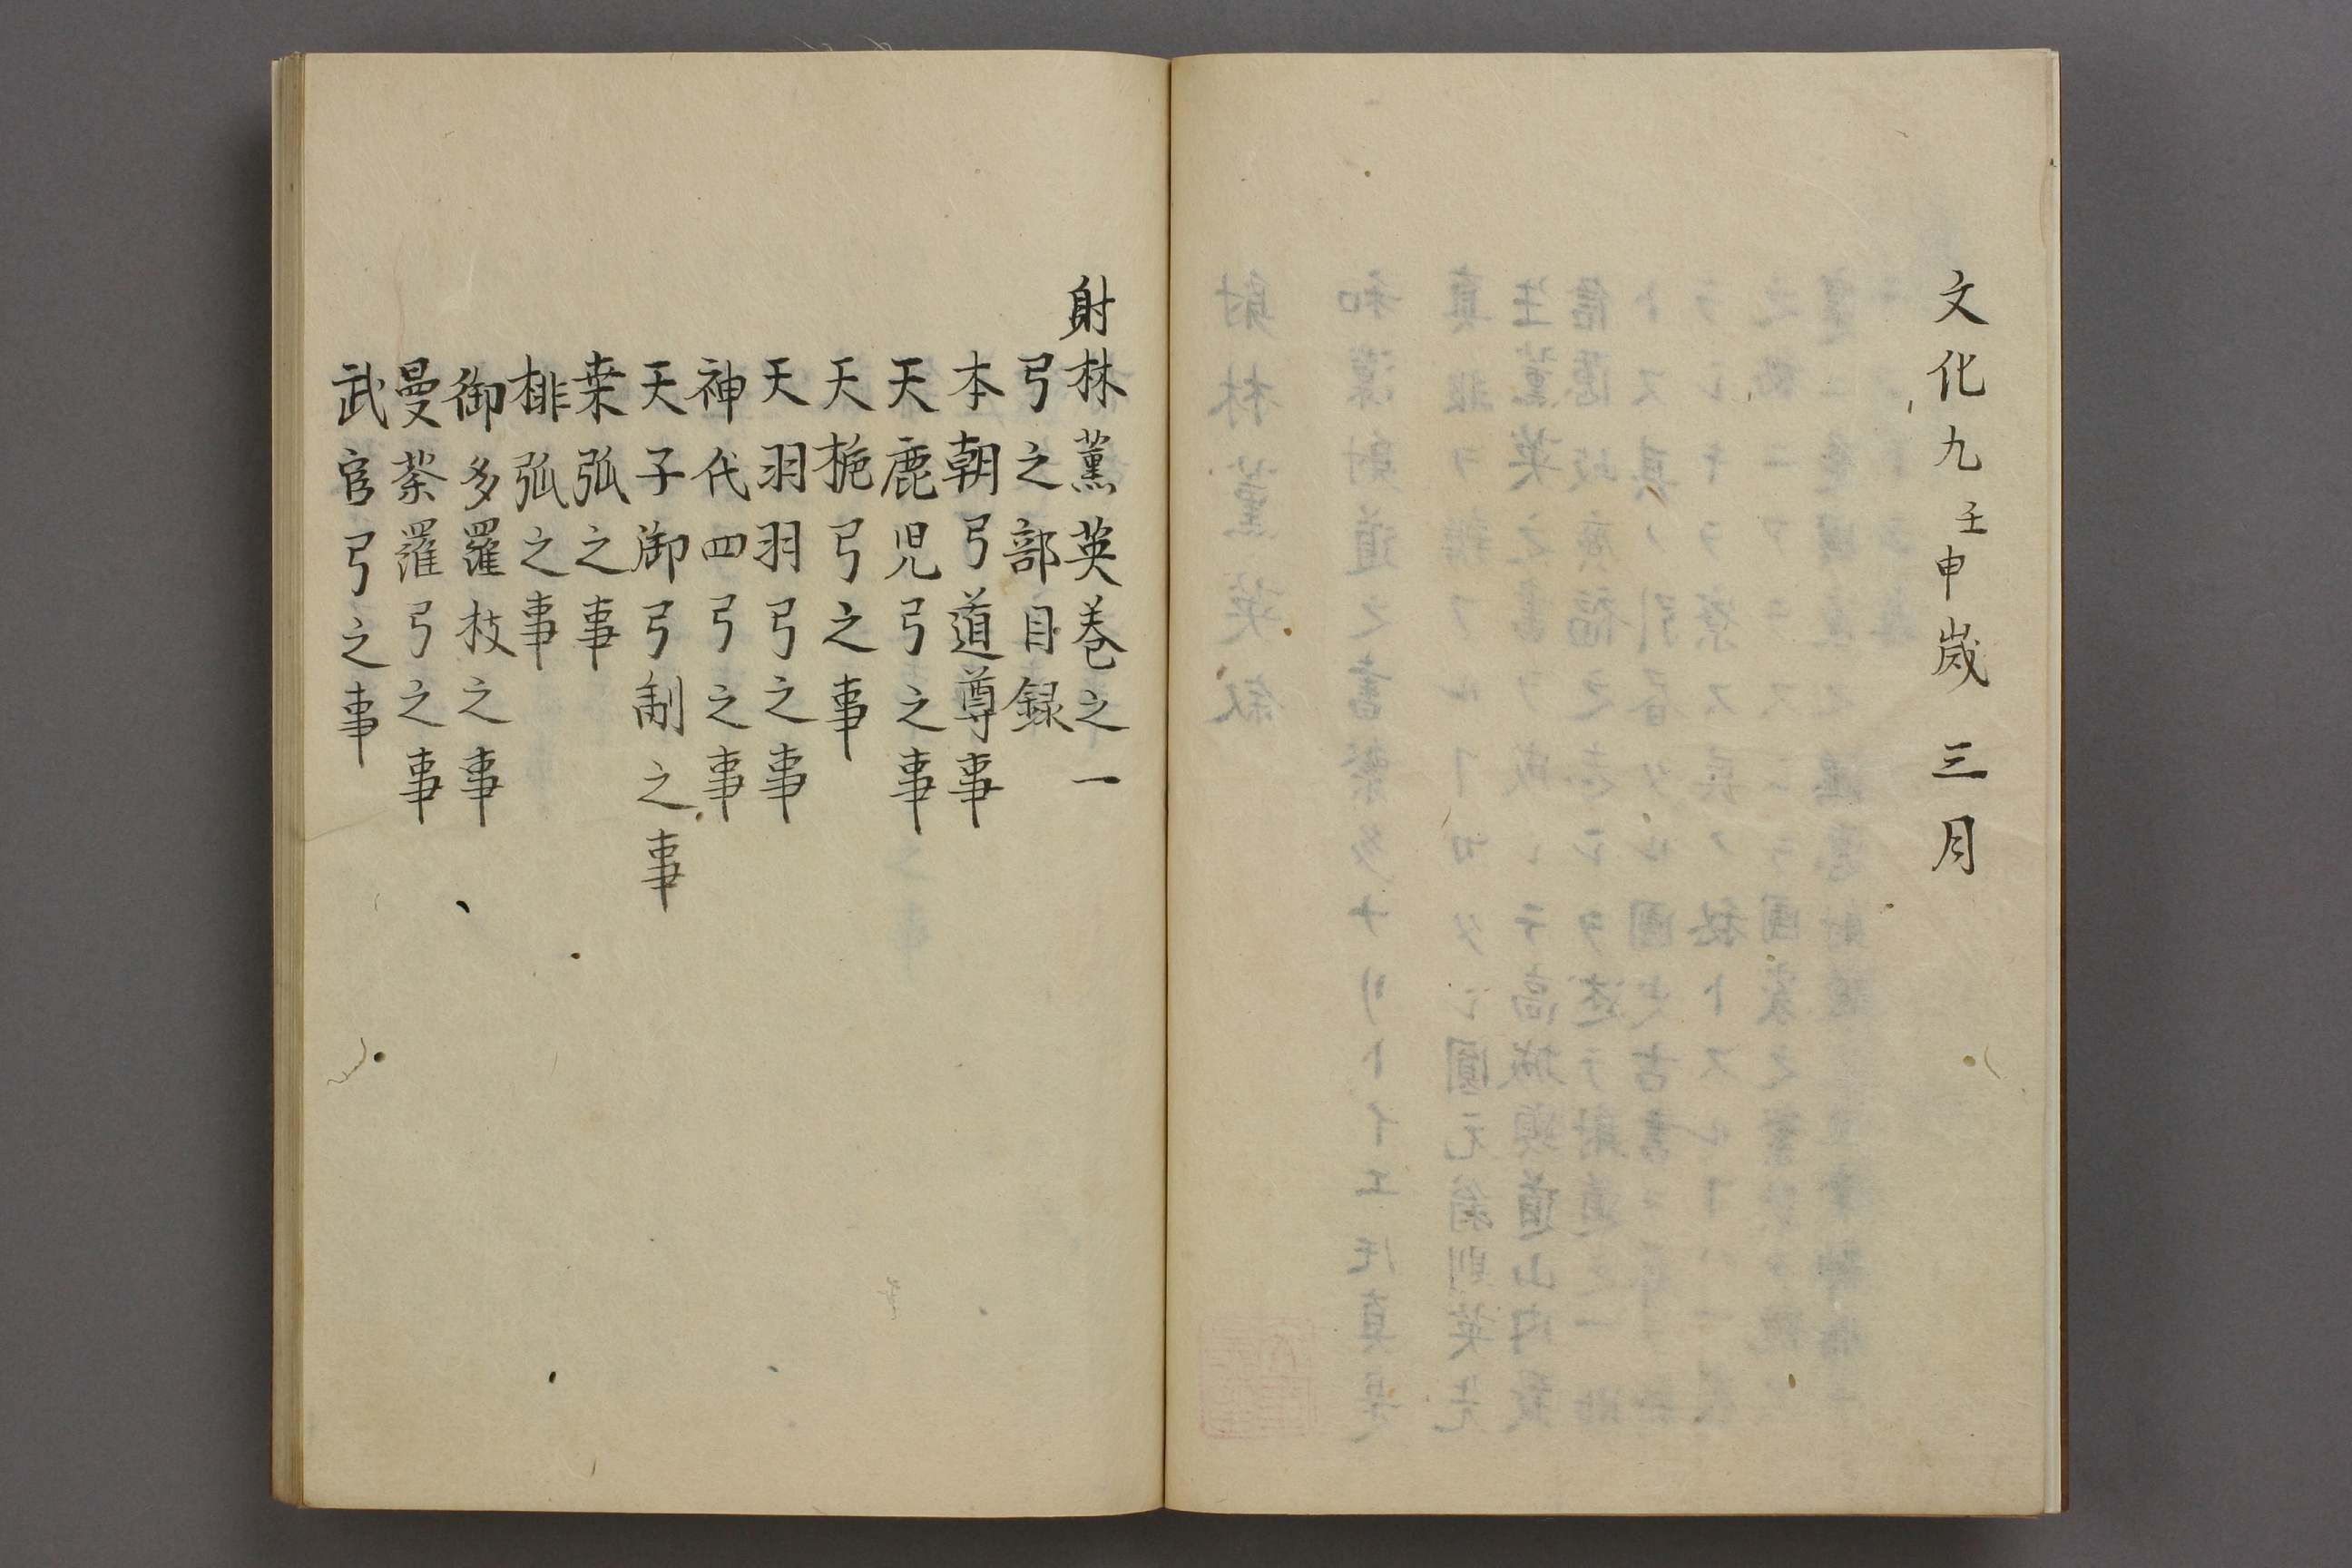 文化九壬申歳三月
射林薫英巻之一
弓之部目録
本朝弓道尊事
天鹿児弓之事
天梔弓之事
天羽羽弓之事
神代四弓之事
天子御弓制之事
桒弧之事
棑弧之事
御多羅枝之事
曼荼羅弓之事
武官弓之事